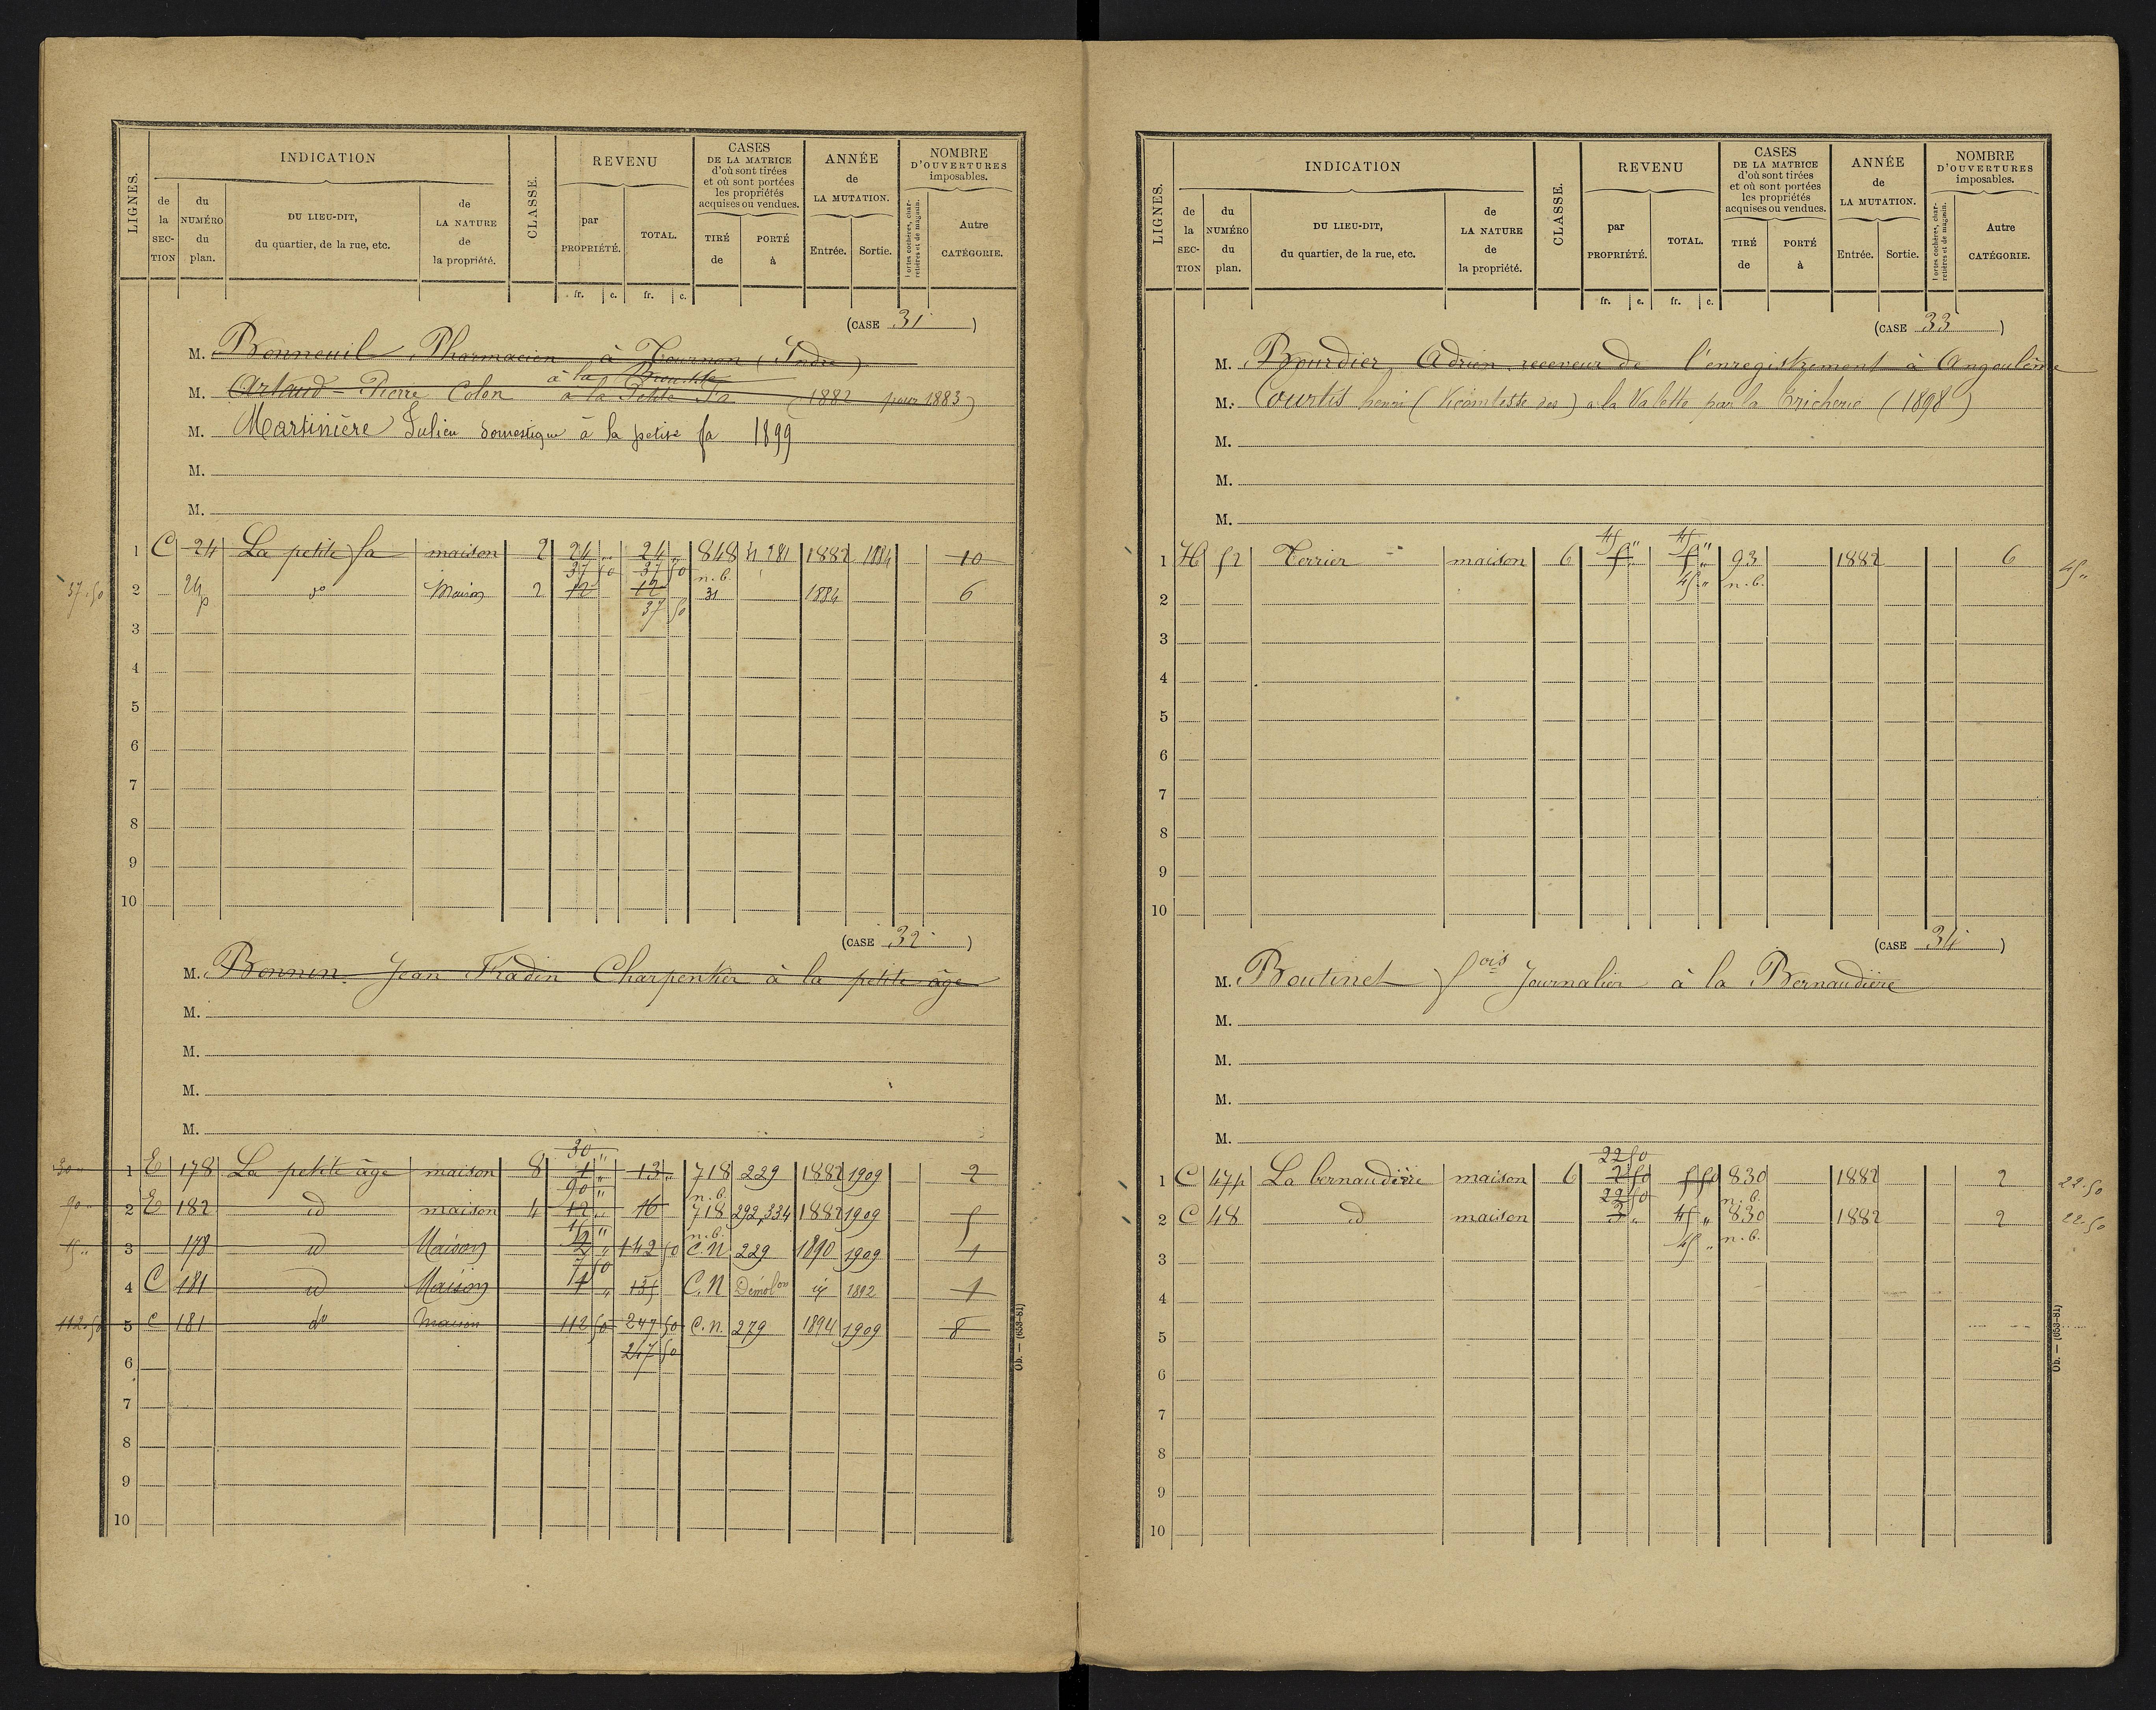 LIGNES. INDICATION CLASSE. REVENU CASES DE LA MATRICE d'où sont tirées et où sont portées les propriétés acquises ou vendues. ANNÉE de LA MUTATION. NOMBRE D'OUVERTURES imposables.
de la SECTION du NUMÉRO du plan. DU LIEU-DIT, du quartier, de la rue, etc. de LA NATURE de la propriété. par PROPRIÉTÉ. TOTAL. TIRÉ de PORTÉ à Entrée. Sortie. Portes cochères, charretières et de magasin. Autre CATÉGORIE.
fr. c. fr. c.
(CASE 31)
M. Bonneuil Pharmacien à Tournon (Indre)
à la
M. Artaud Pierre Colon à la Petite Fa (1882 pour 1883)
M. Martinière Julien domestique à la petite fa 1899
M.
M.
1 C 24 La petite fa maison 2 24 " 24 " 848 281 1882 1884 10
37 50 37 50 n.b.
37.50 2 24p do Maison 2 12 12 31 1884 6
37 50
3
4
5
6
7
8
9
10
(CASE 32)
M. Bonnin Jean Fradin Charpentier à la petite âge
M.
M.
M.
M.
30 "
30 " 1 E 178 La petite âge maison 8 1 " 13 " 718 229 1882 1909 2
90 " n.b.
90 " 2 E 182 id maison 4 12 " 16 718 292,334 1882 1909 5
15 " n.b.
15 " 3 178 id Maison 2 " 142 50 C.N 229 1890 1909 1
7 50
4 C 181 id Maison 14 " 135 C.N Démolon 1892 1
112.50 5 C 181 do Maison 112 50 247 50 C.N. 279 1894 1909 8
247 50
6
7
8
9
10
Ob. — (653-81)
LIGNES. INDICATION CLASSE. REVENU CASES DE LA MATRICE d'où sont tirées et où sont portées les propriétés acquises ou vendues. ANNÉE de LA MUTATION. NOMBRE D'OUVERTURES imposables.
de la SECTION du NUMÉRO du plan. DU LIEU-DIT, du quartier, de la rue, etc. de LA NATURE de la propriété. par PROPRIÉTÉ. TOTAL. TIRÉ de PORTÉ à Entrée. Sortie. Portes cochères, charretières et de magasin. Autre CATÉGORIE.
fr. c. fr. c.
(CASE 33)
M. Bourdier, Adrien receveur de l'enregistrement à Angoulême
M. Courtis henri (Vicomtesse des) a la Valette par la Tricherie (1898)
M.
M.
M.
45 " 45 "
1 H 52 Terrier maison 6 5 " 5 " 93 1882 6 45 "
45 " n.b.
2
3
4
5
6
7
8
9
10
(CASE 34)
M. Boutinet fois Journalier à la Bernaudière
M.
M.
M.
M.
22 50
1 C 47p La bernaudière maison 6 2 50 5 50 830 1882 2 22.50
22 50 n.b.
2 C 48 id maison 3 " 45 " 830 1882 2 22.50
45 " n.b.
3
4
5
6
7
8
9
10
Ob. — (653-81)